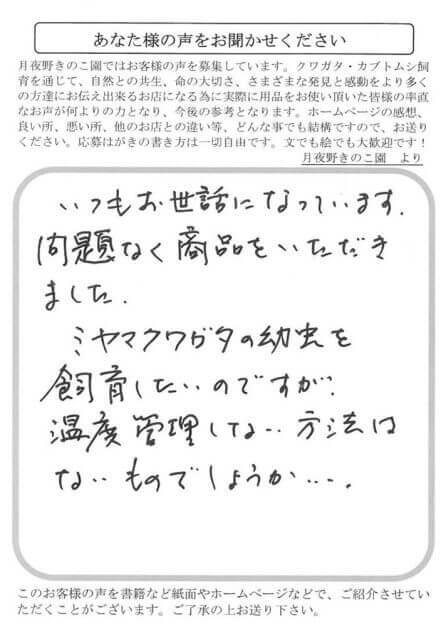 あなた様の声をお聞かせください
月夜野きのこ園ではお客様の声を募集しています。クワガタ・カブトムシ飼
育を通じて、自然との共生、命の大切さ、さまざまな発見と感動をより多く
の方達にお伝え出来るお店になる為に実際に用品をお使い頂いた皆様の率直
なお声が何よりの力となり、今後の参考となります。ホームページの感想、
良い所、悪い所、他のお店との違い等、どんな事でも結構ですので、お送り
ください。応募はがきの書き方は一切自由です。文でも絵でも大歓迎です！
月夜野きのこ園　より
いつもお世話になっています.
問題なく商品をいただき
ました.
ミヤマクワガタの幼虫を
飼育したいのですが、
温度管理しない方法は
ないものでしょうか….
このお客様の声を書籍など紙面やホームページなどで、ご紹介させてい
ただくことがございます。ご了承の上お送り下さい。